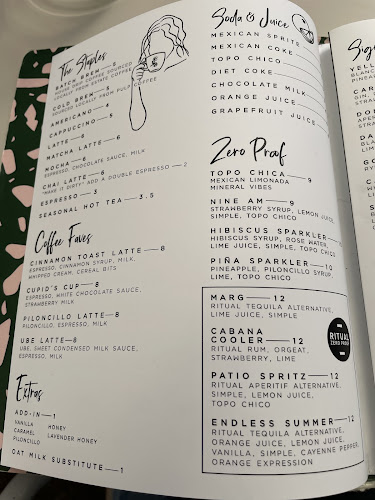 The Staples
BATCH BREW—5
LOCALLY FROM ESTATE COFFEE
COLD BREW—5
SOURCED LOCALLY FROM PULP COFFEE
AMERICANO—6
CAPPUCCINO—5
LATTE—5
MATCHA LATTE—6
MOCHA—6
ESPRESSO, CHOCOLATE SAUCE, MILK
CHAI LATTE—6
"MAKE IT DIRTY" ADD A DOUBLE ESPRESSO—2
ESPRESSO—3
SEASONAL HOT TEA—3.5
Coffee Faves
CINNAMON TOAST LATTE—8
ESPRESSO, CINNAMON SYRUP, MILK,
WHIPPED CREAM, CEREAL BITS
CUPID'S CUP—8
ESPRESSO, WHITE CHOCOLATE SAUCE,
STRAWBERRY MILK
PILONCILLO LATTE—8
PILONCILLO, ESPRESSO, MILK
UBE LATTE—8
UBE, SWEET CONDENSED MILK SAUCE,
ESPRESSO, MILK
Extras
ADD-IN—1
VANILLA HONEY
CARAMEL LAVENDER HONEY
PILONCILLO
OAT MILK SUBSTITUTE—1
Soda & Juice
MEXICAN SPRITE
MEXICAN COKE
TOPO CHICO
DIET COKE
CHOCOLATE MILK
ORANGE JUICE
GRAPEFRUIT JUICE
Zero Proof
TOPO CHICA—9
MEXICAN LIMONADA
MINERAL VIBES
NINE AM—9
STRAWBERRY SYRUP, LEMON JUICE,
SIMPLE, TOPO CHICO
HIBISCUS SPARKLER
HIBISCUS SYRUP, ROSE WATER,
LIME JUICE, SIMPLE, TOPO CHICO
PIÑA SPARKLER—10
PINEAPPLE, PILONCILLO SYRUP,
LIME, TOPO CHICO
MARG—12
RITUAL TEQUILA ALTERNATIVE,
LIME JUICE, SIMPLE
CABANA
COOLER—12
RITUAL RUM, ORGEAT,
STRAWBERRY, LIME
RITUAL
ZERO PROOF
PATIO SPRITZ—12
RITUAL APERITIF ALTERNATIVE,
SIMPLE, LEMON JUICE,
TOPO CHICO
ENDLESS SUMMER—12
RITUAL TEQUILA ALTERNATIVE,
ORANGE JUICE, LEMON JUICE,
VANILLA, SIMPLE, CAYENNE PEPPER,
ORANGE EXPRESSION